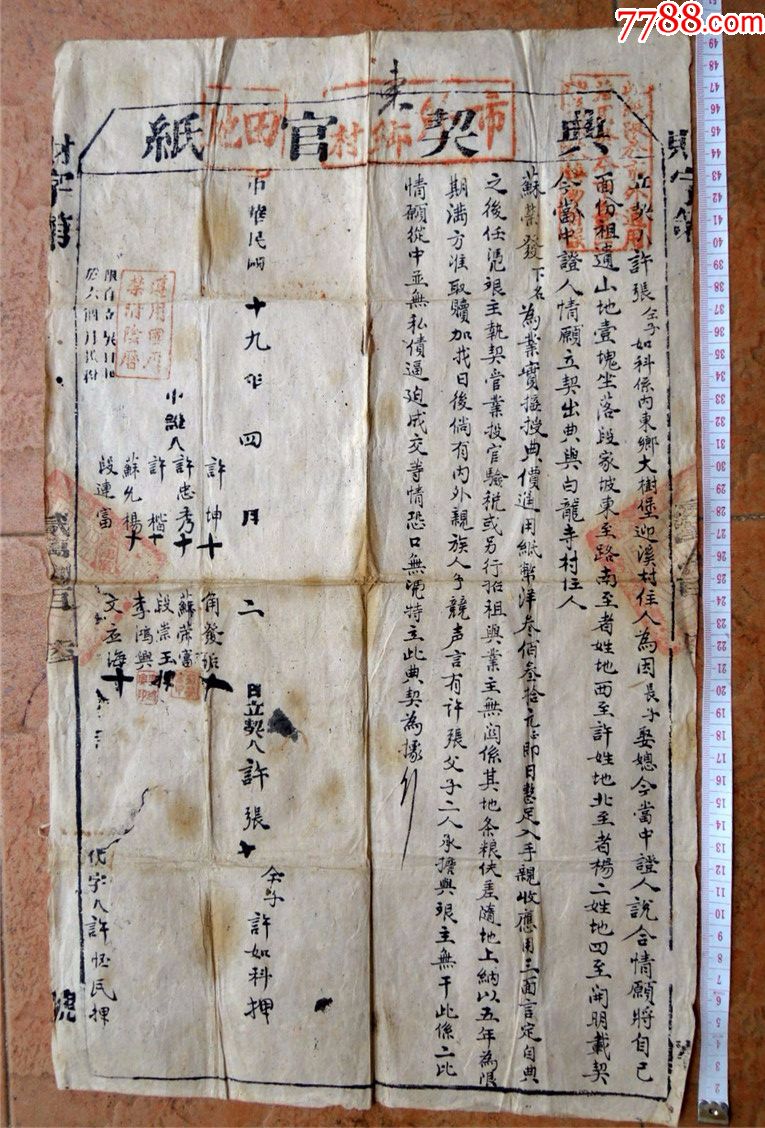 7788.com
東
典契官紙
市 鄉村
田地
財字第
號
立契人許張仝子如科係內東鄉大樹堡迎溪村住人為因長子娶媳今當中證人說合情願將自己
面份祖遺山地壹塊坐落段家坡東至路南至者姓地西至許姓地北至者楊二姓地四至開明載契
今當中證人情願立契出典與白龍寺村住人
蘇榮發下名為業實接授典價通用紙幣洋叁佰叁拾元即日整足入手親收應用三面言定自典
之後任憑銀主執契管業投官驗稅或另行招祖與業主無関係其地条粮伕差隨地上納以五年為限
期滿方准取贖加找日後倘有內外親族人等競声言有許張父子二人承擔與銀主無干此係二比
情願從中並無私債逼迫成交等情恐口無憑特立此典契為據
中華民國十九年四月二日立契人許張十
仝子許如科押
中証人
許坤十
許忠秀十
許楷十
蘇允楊十
段連富
蘇榮富
段崇玉押
李鴻興
文立海十
適用國曆
禁附陰曆
代字人許恆民押